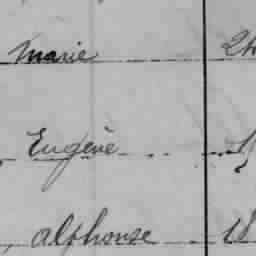 Marie 24
Eugène
Alphonse 18